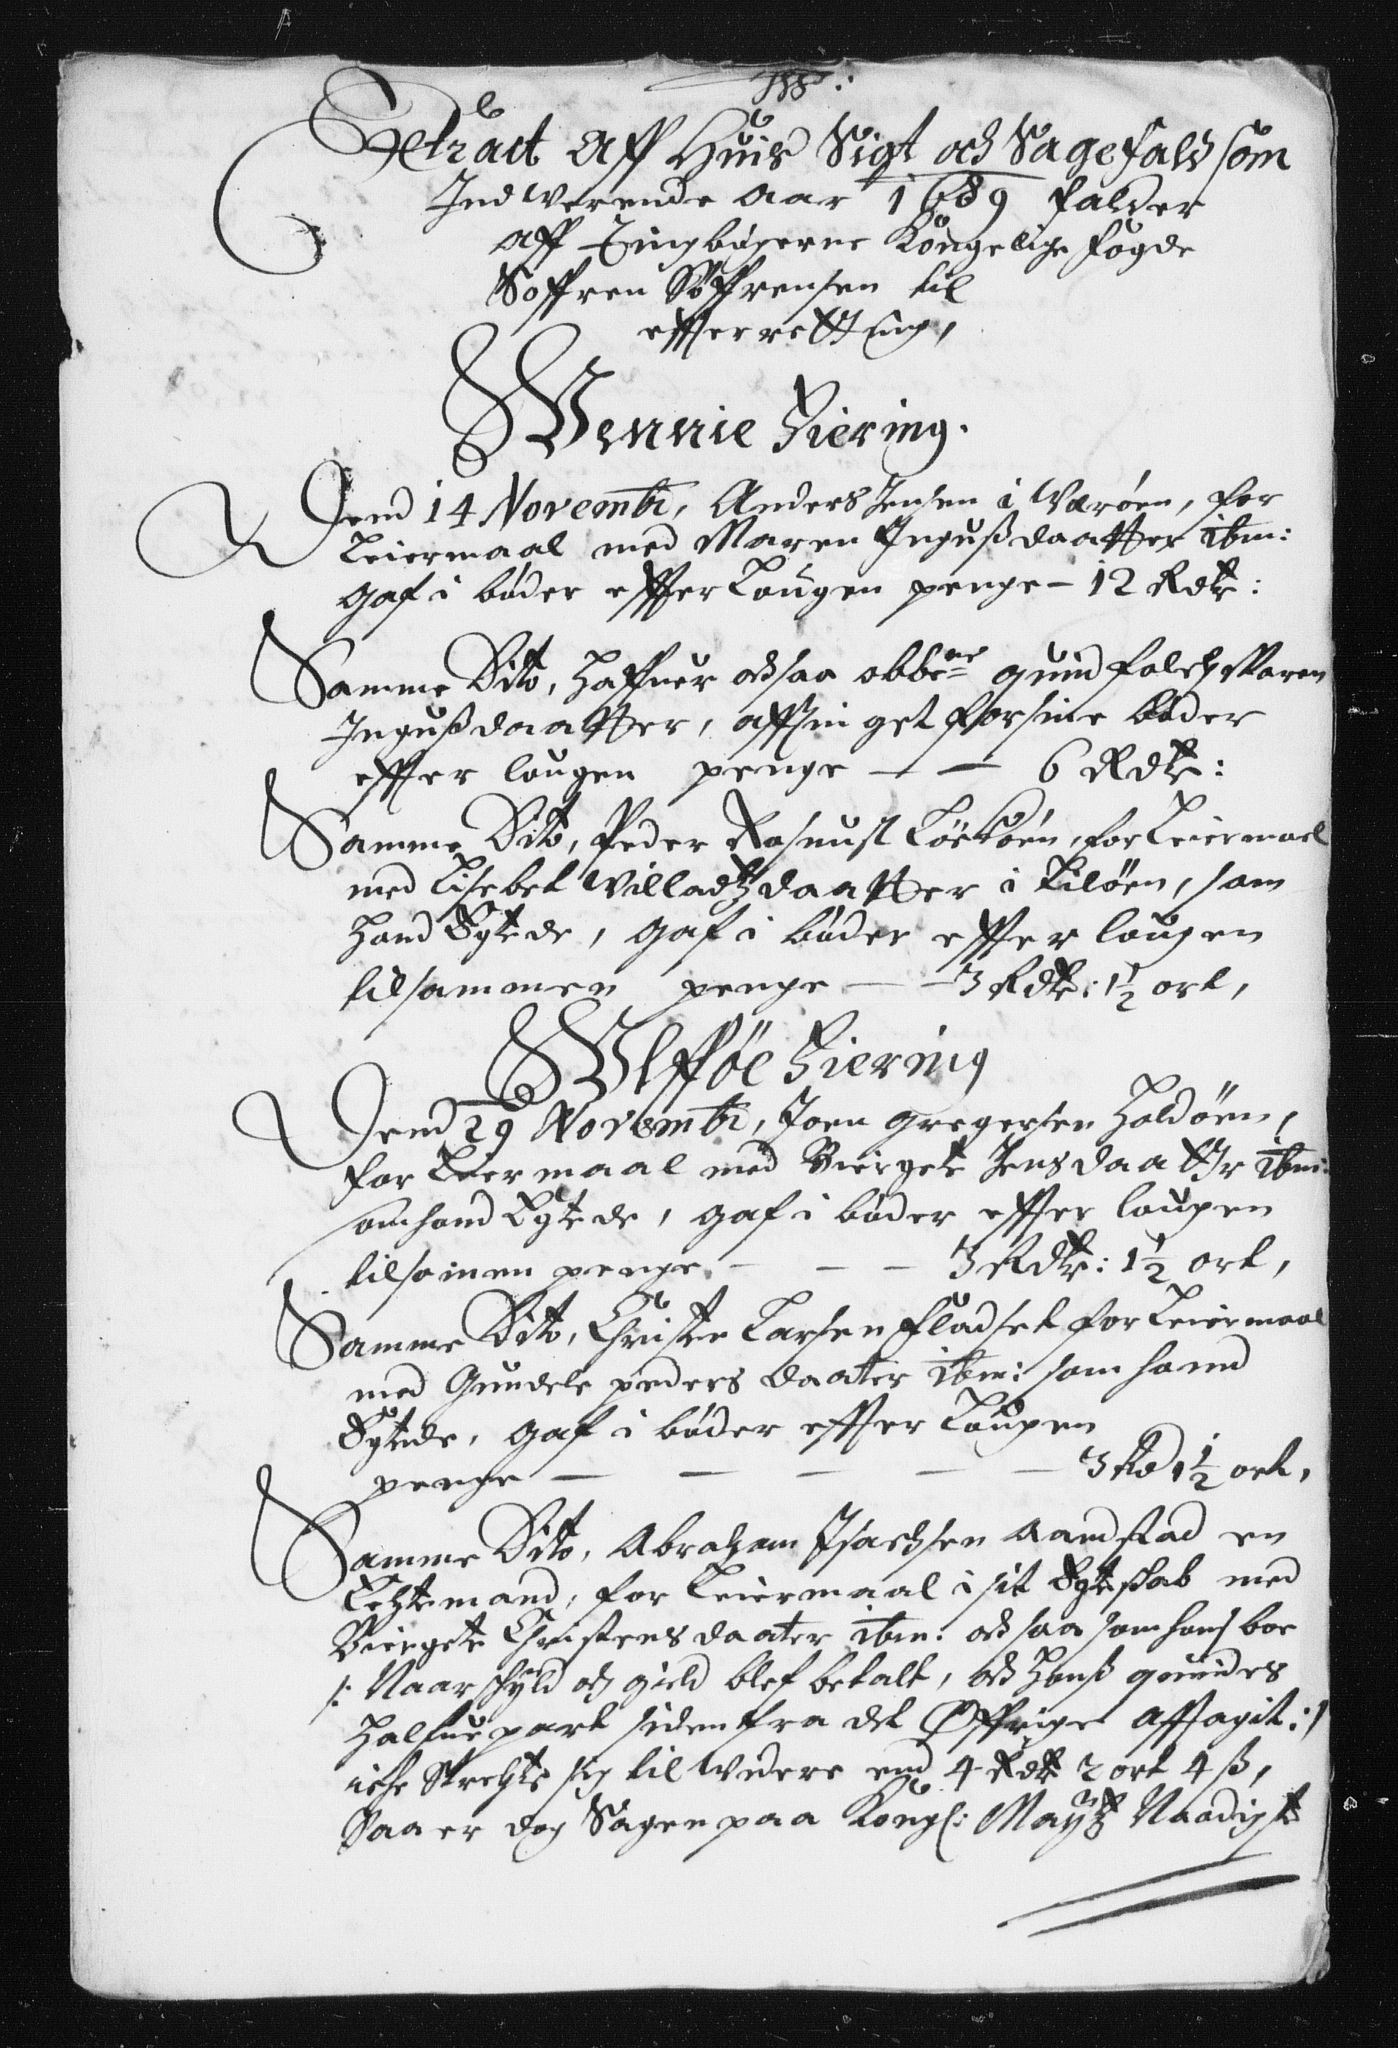 Extract Aff Huis Sigt och Sagefald som
Indwerende Aar 1689 falder
aff Tingbøgerne Kongelige fogde
Søffren Søffrensen til
efterretting,
Wennie Fiering.
Dend 14 Novemb:, Anders Jensen i Værøen, for
Leiermaal med Maren Ingußdaatter ibm:
gaf i bøder effter Lougen penge – 12 Rdr:
Samme Dito, Haffuer och saa obbene quindfolch Maren
Ingußdaatter, afftinget for sine bøder
effter lougen penge – – 6 Rdr:
Samme Dito, Peder Rasmus: for Leiermael
med Lisebet Villadtzdaatter i Liløen, som
hand Egtede, gaf i bøder effter lougen
tilsammen penge – – 3 Rdr: 1½ ort,
Ulfføe Fiering
Dend 29 Novemb:, Joen Gregersen Holdøen,
for Leiermaal med Biergete Jensdaatter ibm:
som hand Egtede, gaf i bøder effter lougen
tilsamen penge – – – 3 Rdr: 1½ ort,
Samme Dito, Christen Larsen Fladset for Leiermaal
med Gundele peders daater ibm: som hannd
Egtede, gaf i bøder effter Lougen
penge – – – – – 3 Rd 1½ ort,
Samme Dito, Abraham Isachsen Aandstad en
Echtemand, for Leiermaal i sit Egteskab med
Biergete Christensdaater ibm: och saa som hans boe
/: Naar skyld och gield blef betalt, och Hanß quindes
halfue part siden fra det Øffrige afftagit :/
iche Strechte sig til widere end 4 Rdr 2 ort 4 ß,
Saa er dog Sagen paa Kongl: Maytz Naadigste